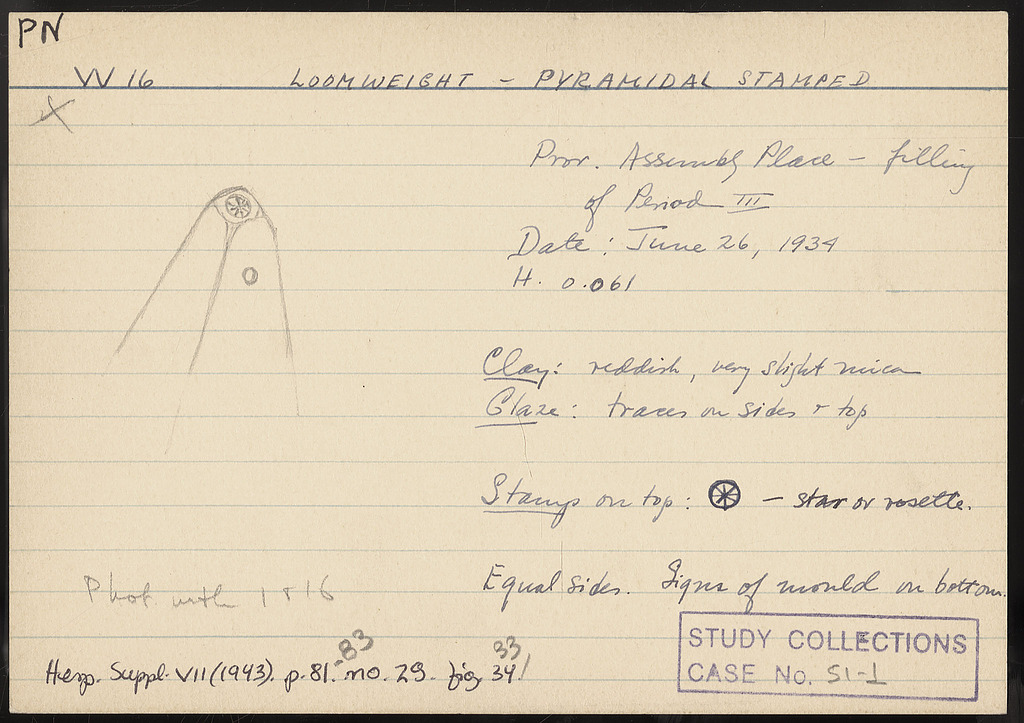 PN
W 16 LOOMWEIGHT - PYRAMIDAL STAMPED
X
Prov. Assembly Place - filling
of Period III
Date: June 26, 1934
H. 0.061
Clay: reddish, very slight mica
Glaze: traces on sides + top
Stamp on top: - star or rosette.
Equal sides. Signs of mould on bottom.
Phot. with 1 + 16
Hesp. Suppl. VII (1943). p. 81. -83 no. 29. fig. 34 33
STUDY COLLECTIONS
CASE No. S1-1